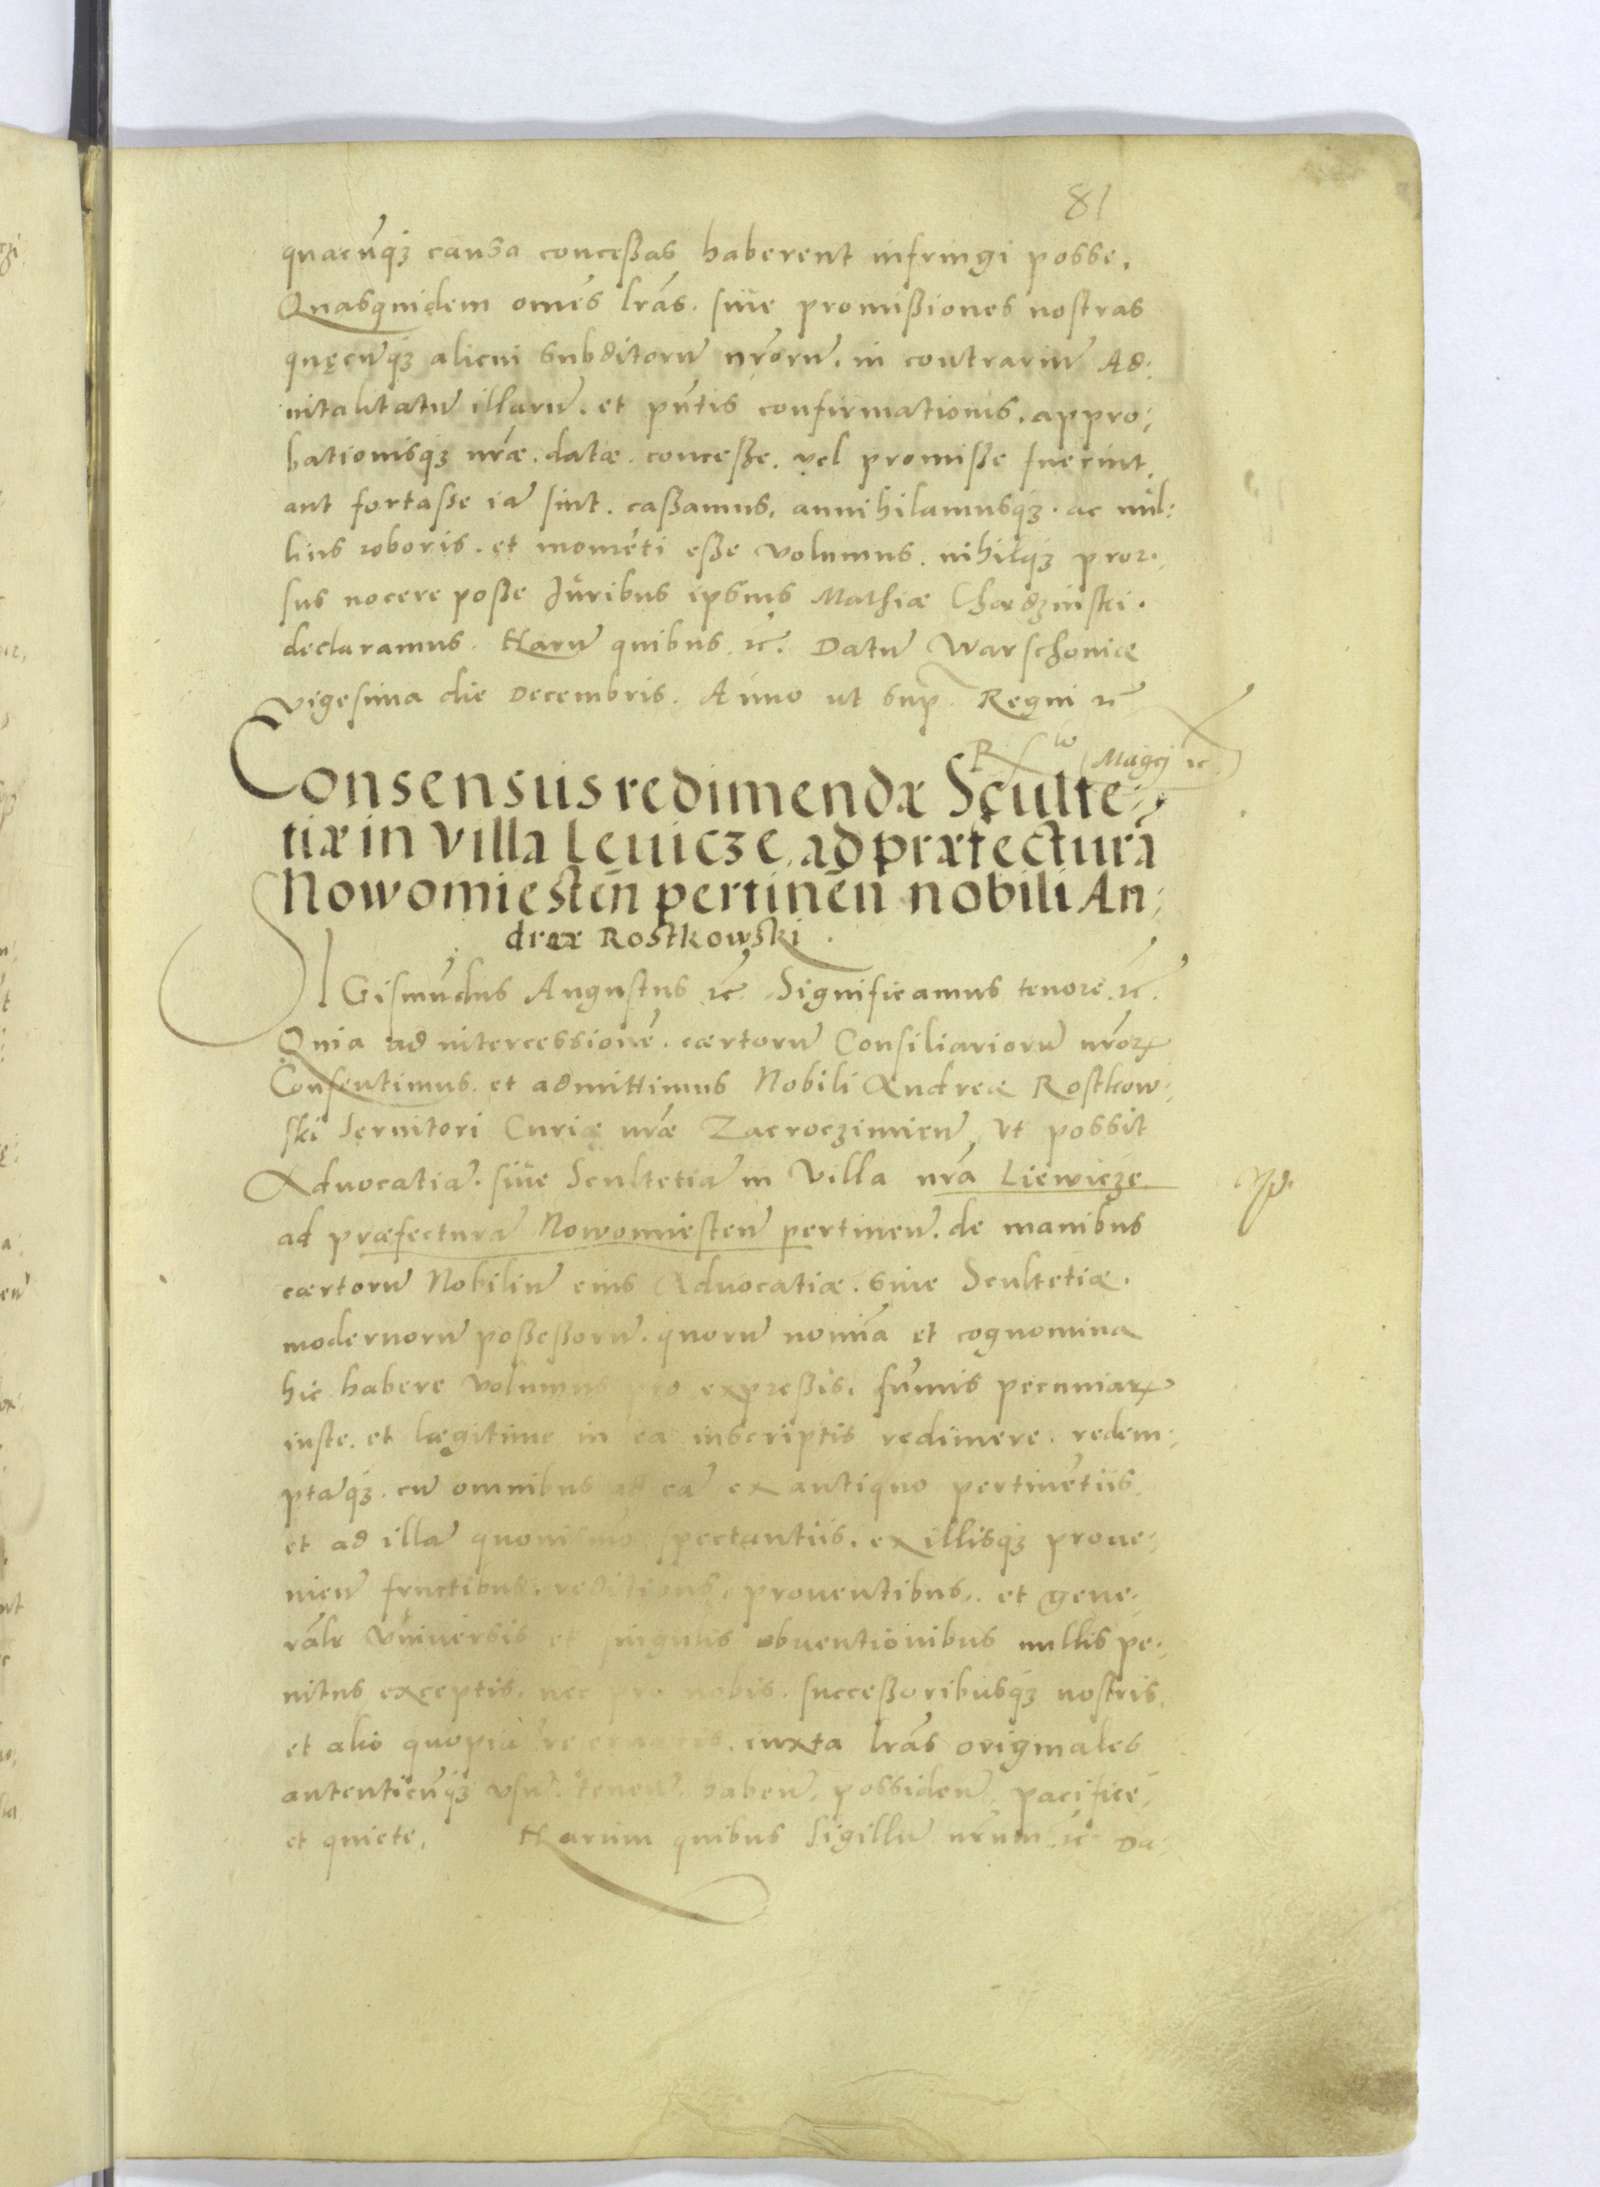 81
quacūqꝫ causa conceßas haberent infringi posse.
Quasquidem omēs lrās. siue promißiones nostras
quęcūqꝫ alicui subditorū nrōrū. in contrariū Ad⸗
uitalitatū illarū. et pn̄tis confirmationis. appro⸗
bationisqꝫ nrǣ. datæ. conceßæ. vel promißæ fuerint,
aut fortaße iā sint. caßamus, annihilamusqꝫ. ac nul⸗
lius roboris. et momēti eße volumus. nihilqꝫ pror⸗
sus nocere poße Juribus ipsius Mathiæ Chædzinski.
declaramus. Harū quibus ꝛc̄. Datū Warschouiæ
vigesima die Decembris. Anno ut sup. Regni ꝛc̄
Magcȷ ꝛc
Consensus redimendæ Sculte⸗
tiæ in villa Leuicze, ad præfecturā
Nowomiestēn pertinēn nobili An⸗
dreæ Rostkowski.
SIGismūdus Augustus ꝛc̄. Significamus tenore ꝛc̄.
Quia ad intercessionē. cærtorū Consiliariorū nrōrꝝ
Consentimus. et admittimus Nobili Andreæ Rostkow⸗
ski Seruitori Curiæ nrǣ Zacroczimien̄, Vt possit
Aduocatiā. siue Scultetiā in Villa nrā Liewicze
ad præfecturā Nowomiesten̄ pertinen̄. de manibus
cærtorū Nobiliū eius Aduocatiæ. siue Scultetiæ.
modernorū poßeßorū. quorū nomīa et cognomina
hic habere volumus pro expreßis. sūmis pecuniarꝝ
iuste. et lægitime in ea inscriptis redimere. redem⸗
ptāqꝫ. cū omnibus ad eā ex antiquo pertinētiis
et ad illā quouismō spectantiis. ex illisqꝫ proue⸗
nien̄ fructibus. reditibus, prouentibus. et gene⸗
rālr Vniuersis et singulis obuentionibus nullis pe⸗
nitus exceptis. nec pro nobis. succeßoribusqꝫ nostris,
et alio quopiā reseruatis. iuxta lrās originales
autenticūqꝫ vsū. tenen̄. haben̄, possiden̄, pacifice,
et quiete. Harum quibus Sigillū nrūm ꝛc̄ Da⸗